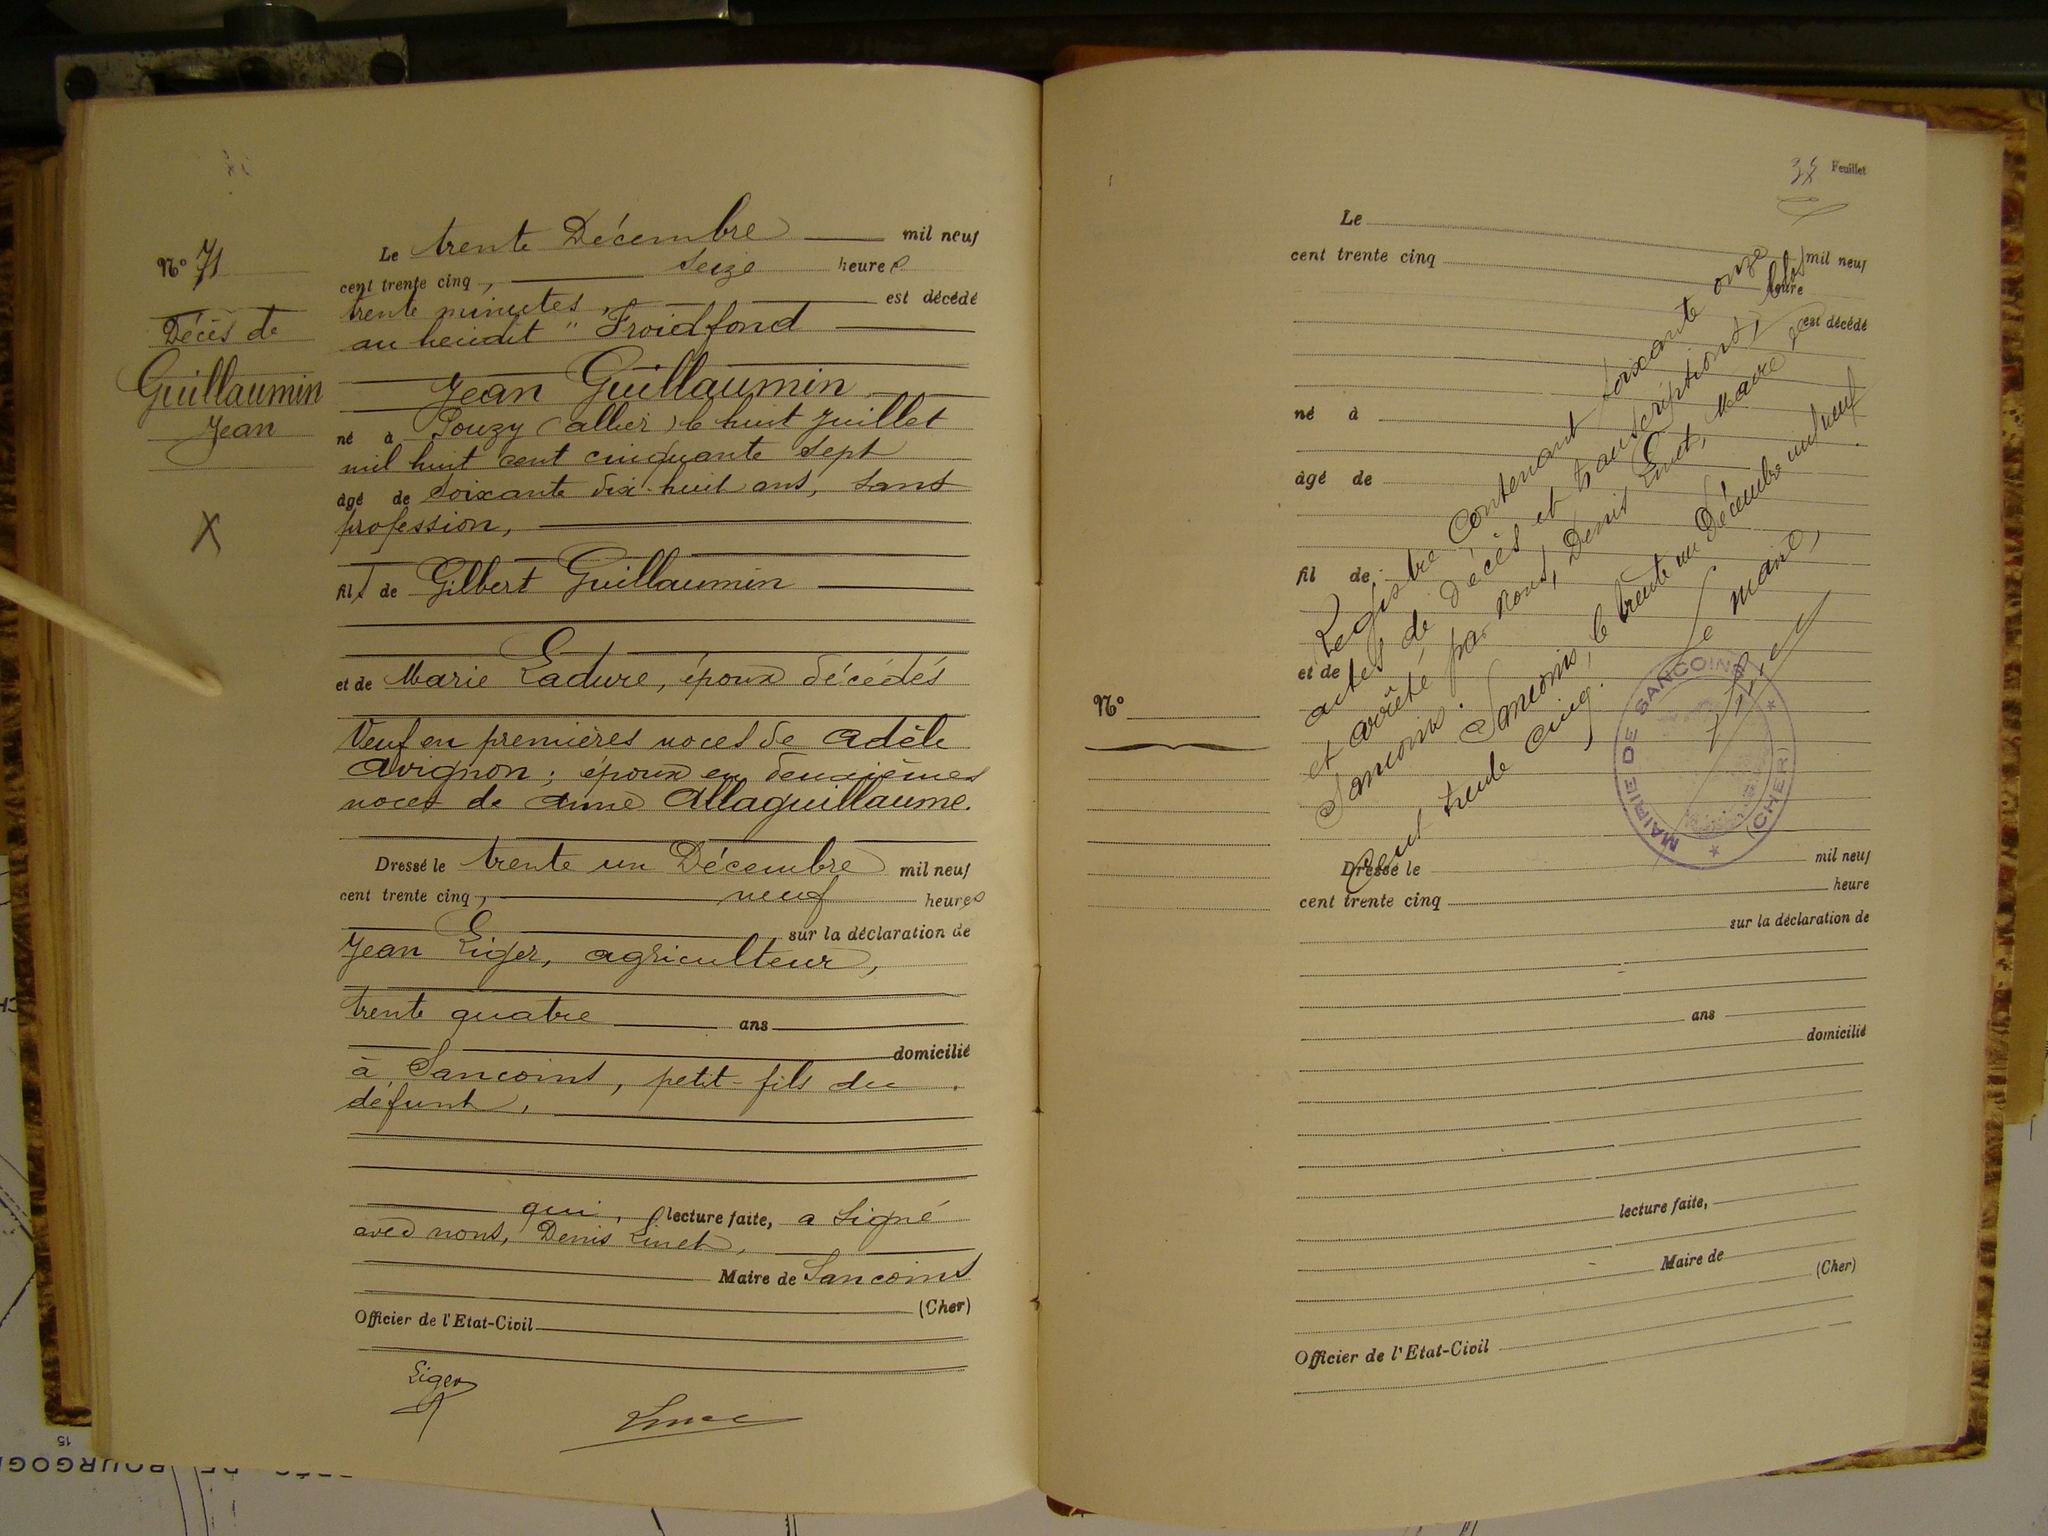 N° 71
Décès de
Guillaumin
Jean
Le trente Décembre mil neuf
cent trente cinq, seize heures
trente minutes, est décédé
au lieudit "Froidfond
Jean Guillaumin
né à Pouzy (allier) le huit Juillet
mil huit cent cinquante sept
âgé de soixante dix-huit ans, sans
profession,
fils de Gilbert Guillaumin
et de Marie Ladure, époux décédés
Veuf en premières noces de Adèle
Avignon; époux en deuxièmes
noces de Anne Allaguillaume.
Dressé le trente un Décembre mil neuf
cent trente cinq, neuf heures
sur la déclaration de
Jean Liger, agriculteur,
trente quatre ans
domicilié
à Sancoins, petit-fils du
défunt,
qui, lecture faite, a signé
avec nous, Denis Linet,
Maire de Sancoins
(Cher)
Officier de l'Etat-Civil
Liger
Feuillet
Le mil neuf
cent trente cinq
heure
est décédé
né à
âgé de
fil de
et de
N°
Registre contenant soixante onze
actes de décès et transcriptions,
et arrêté par nous, Denis Linet, Maire de
Sancoins.
Sancoins, le trente un Décembre mil neuf
cent trente cinq.
Le maire,
MAIRIE DE SANCOINS
(CHER)
Dressé le mil neuf
cent trente cinq heure
sur la déclaration de
ans
domicilié
lecture faite,
Maire de
(Cher)
Officier de l'Etat-Civil
15